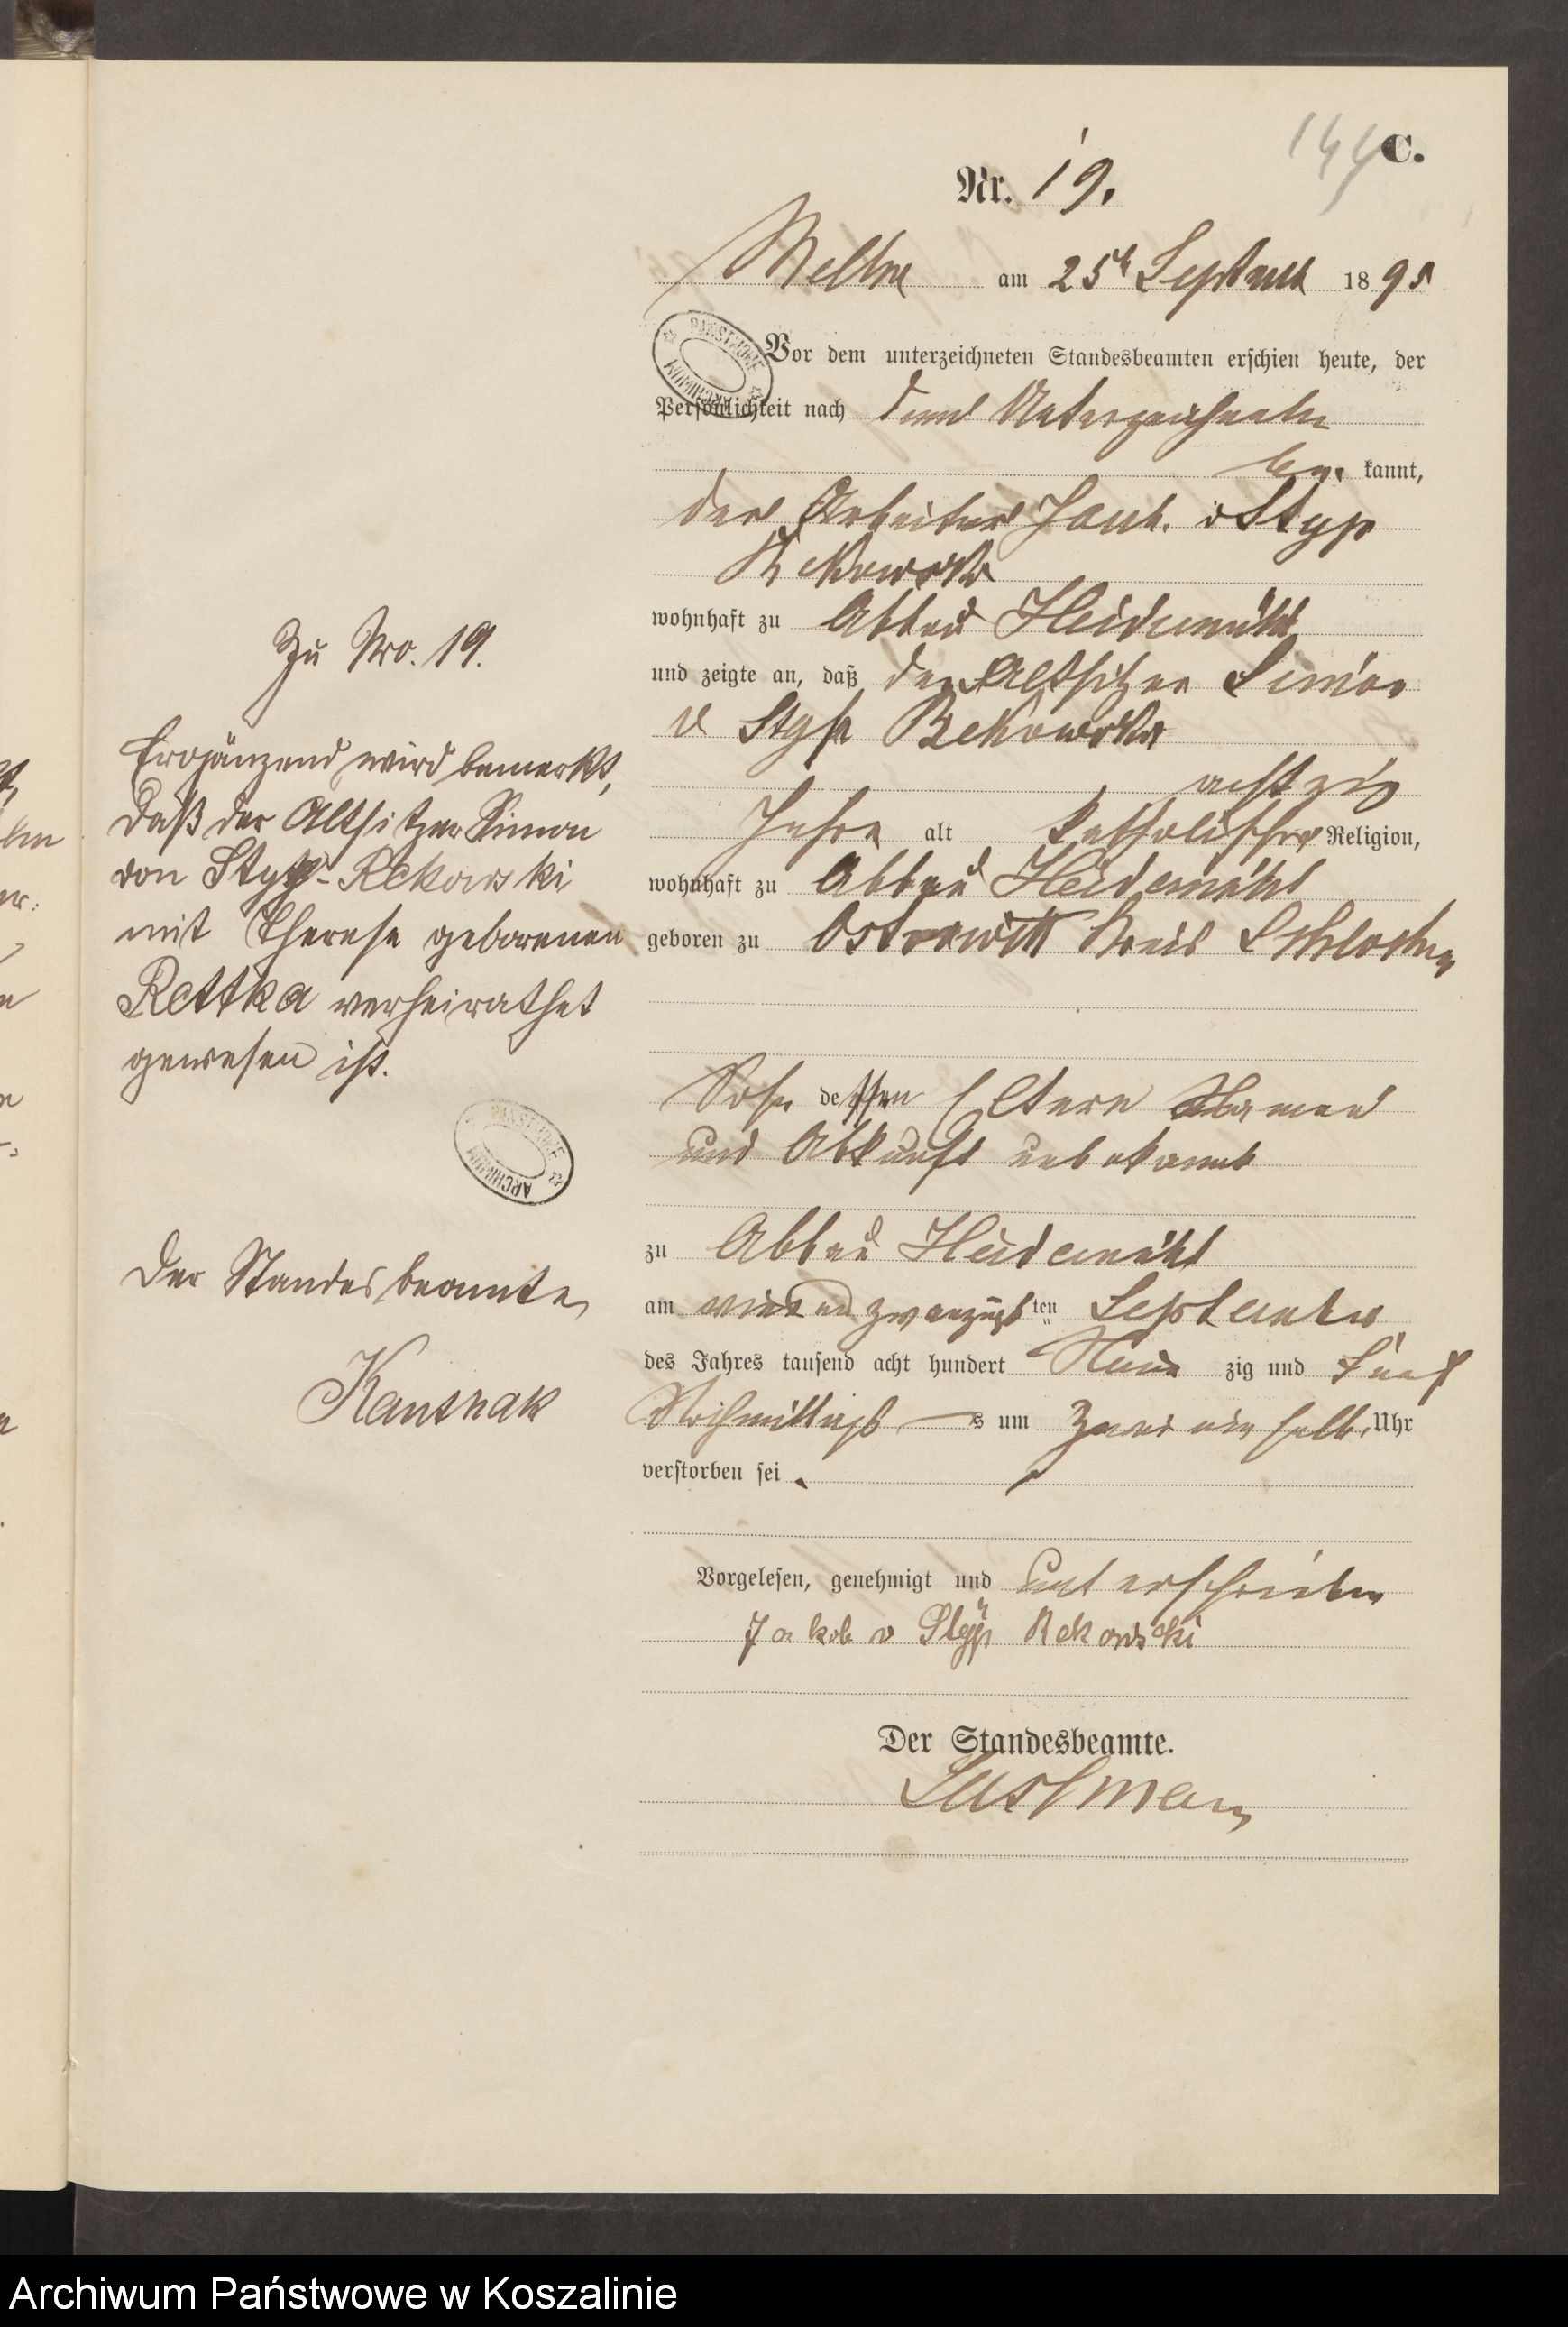 144
C.
Nr. 19.
am 25t September 1895
Vor dem unterzeichneten Standesbeamten erschien heute, der
Persönlichkeit nach dem Unterzeichneten
be kannt,
der Arbeiter Jacob v Styp
Rekowski
wohnhaft zu Abbau Heidemühl
und zeigte an, daß der Altsitzer Simon
v Styp Rekowski
achtzig
Jahre alt katholischer Religion,
wohnhaft zu Abbau Heidemühl
geboren zu Ostrowitt Kreis Schlochau
Sohn dessen Eltern Namen
und Abkunft unbekannt
zu Abbau Heidemühl
am vier und zwanzigsten September
des Jahres tausend acht hundert Neun zig und fünf
Nachmittags um Zwei ein halb Uhr
verstorben sei.
Vorgelesen, genehmigt und unterschrieben
Jakob v Styp Rekowski
Der Standesbeamte.
Zu No. 19.
Ergänzend wird bemerkt,
daß der Altsitzer Simon
von Styp-Rekowski
mit Therese geborenen
Rettka verheirathet
gewesen ist.
Der Standesbeamte
PAŃSTWOWE ARCHIWUM
PAŃSTWOWE ARCHIWUM
Archiwum Państwowe w Koszalinie